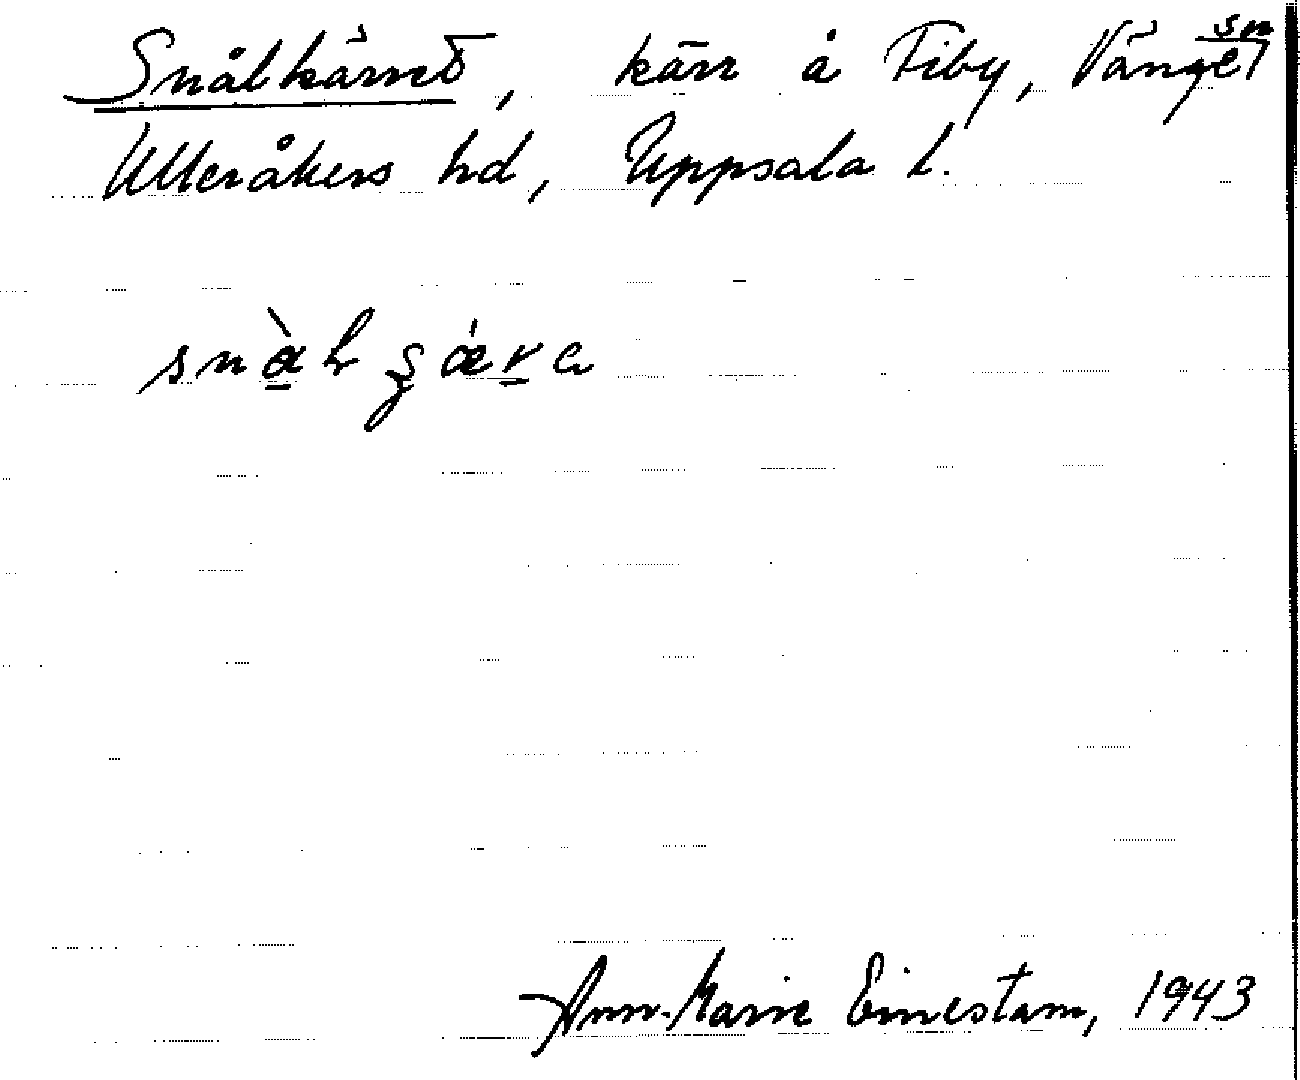 Snålkärret, kärr å Fiby, Vänge sn
Ulleråkers hd, Uppsala l.
Ann-Marie Einestam, 1943